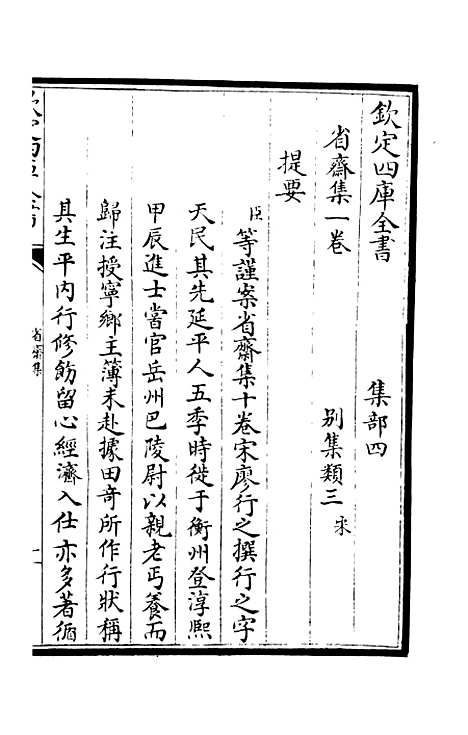 欽定四庫全書　集部四
省齋集一卷　別集類三 宋
提要
臣等謹案省齋集十卷宋廖行之撰行之字
天民其先延平人五季時徙于衡州登淳熙
甲辰進士嘗官岳州巴陵尉以親老丐養而
歸注授寧鄉主簿未赴據田奇所作行狀稱
其生平內行修飭留心經濟入仕亦多著循
欽定四庫全書
省齋集
一